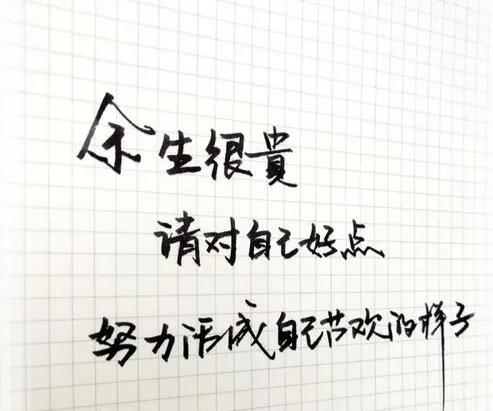 余生很貴
请对自己好点
努力活成自己节欢的样子